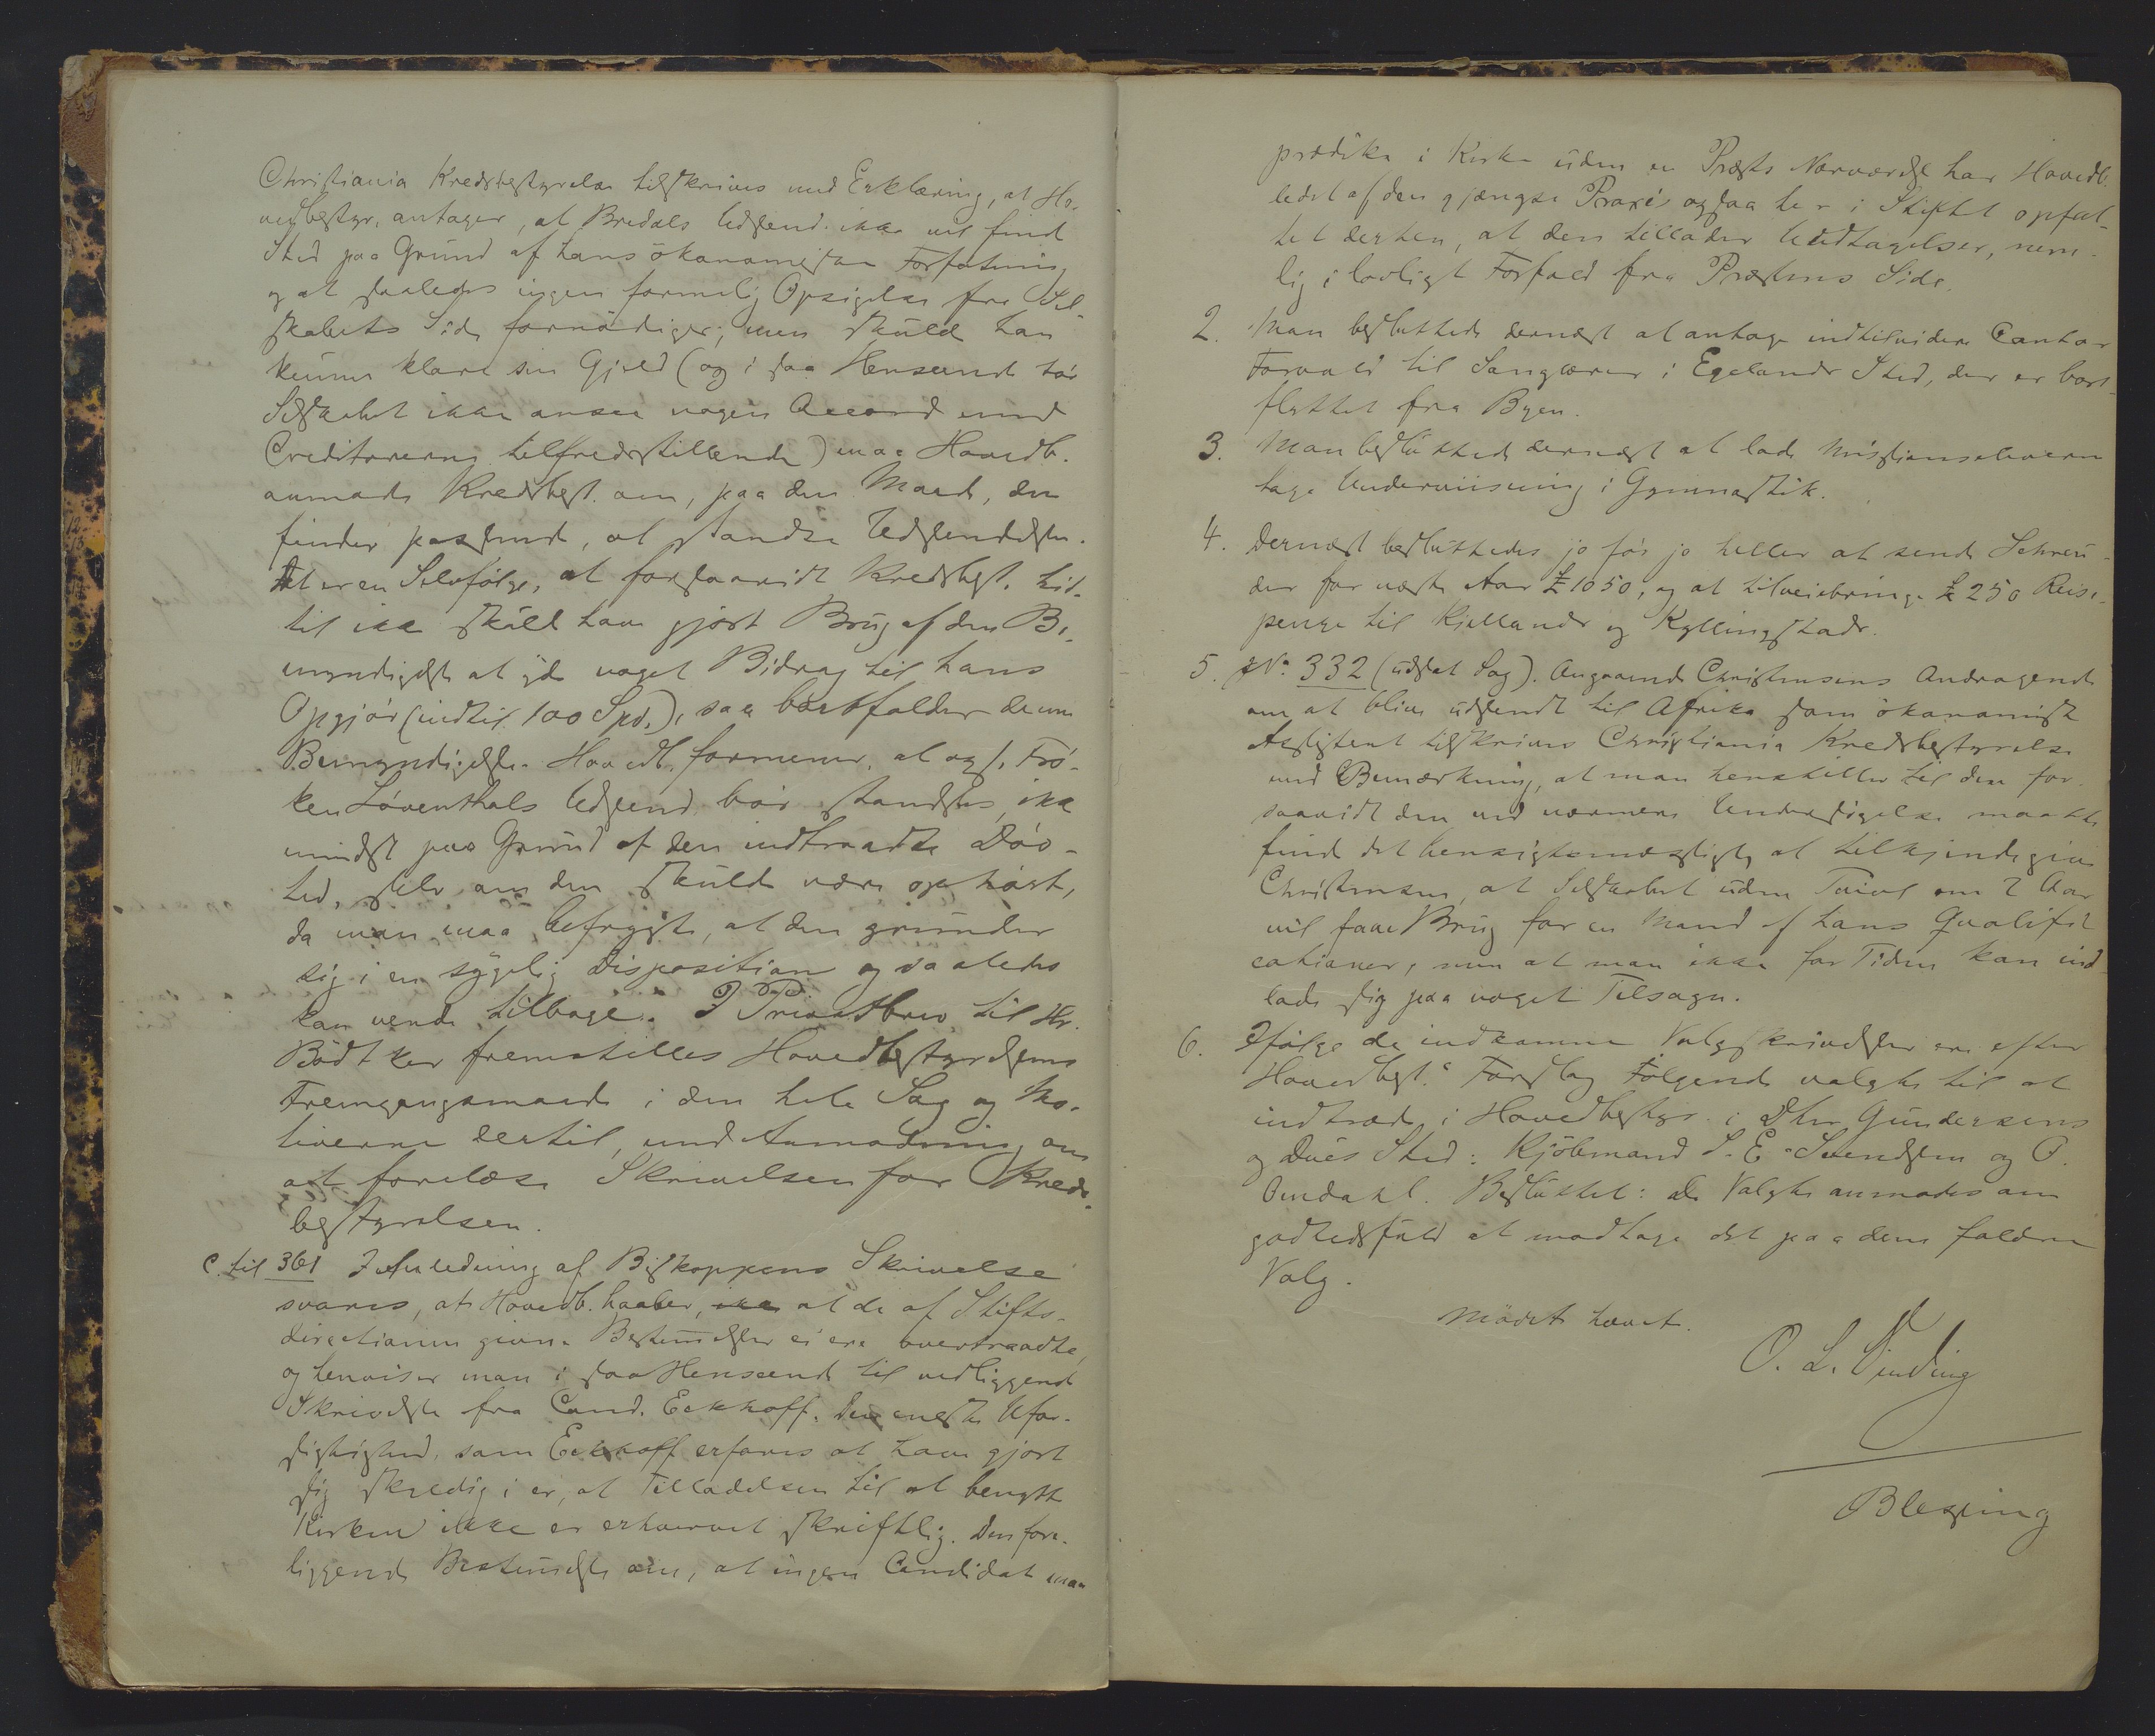 Christiania Kredsbestyrelse tilskrives med Erklæring, at Ho-
vedbestyr. antager, at Bredals Udsend. ikke vil finde
Sted paa Grund af hans økonomiske Forfatning,
og at saaledes ingen formelig Opsigelse fra Sel-
skabets Side fornødiges; men skulde han
kunne klare sin Gjeld (og i saa Henseende tør
Selskabet ikke ansee nogen Accord med
Creditorerne tilfredsstillende) maa Hovedb.
anmode Kredsbest. om, paa den Maade, den
finder passende, at standse Udsendelsen.
Det er en Selvfølge, at forsaavidt Kredsbest. hid-
til ikke skulde have gjort Brug af den Be-
myndigelse at yde noget Bidrag til hans
Opgjør (indtil 100 Spd.), saa bortfalder denne
Bemyndigelse. Hovedb. formener, at ogs. Frø-
ken Løventhals Udsend. bør standses, ikke
mindst paa Grund af den indtraadte Døv-
hed, selv om den skulde være ophørt,
da man maa befrygte, at den grunder
sig i en sygelig Disposition og saaledes
kan vende tilbage. I Privatbrev til Hr.
Bødtker fremstilles Hovedbestyrelsens
Fremgangsmaade i den hele Sag og Mo-
tiverne dertil, med Anmodning om
at forelæse Skrivelsen for Kreds-
bestyrelsen.
C. til 361 I Anledning af Biskoppens Skrivelse
svares, at Hovedb. haaber, at de af Stifts-
directionen givne Bestemmelser ei ere overtraadte,
og henviser man i saa Henseende til vedliggende
Skrivelse fra Cand. Eckhoff. Den eneste Ufor-
sigtighed, som Eckhoff erfares at have gjort
sig skyldig i er, at Tilladelsen til at benytte
Kirken ikke er erhvervet skriftlig. Den fore-
liggende Bestemmelse om, at ingen Candidat maa
prædike i Kirke uden en Præsts Nærværelse har Hovedb.
ledet af den gjængse Praxis ogsaa her i Stiftet opfat-
tet derhen, at den tillader Undtagelser, nem-
lig i lovligt Forfald fra Præstens Side.
2. Man besluttede dernæst at antage indtilvidere Cantor
Forvald til Sanglærer i Egelands Sted, der er bort-
flyttet fra Byen.
3. Man besluttede dernæst at lade Missionseleverne
tage Underviisning i Gymnastik.
4. Dernæst besluttedes jo før jo heller at sende Schreu-
der for næste Aar £ 1050, og at tilveiebringe £ 250 Reise-
penge til Kiellands og Kyllingstads.
5. No. 332 (udsat Sag). Angaaende Christensens Andragende
om at blive udsendt til Afrika som økonomisk
Assistent tilskrives Christiania Kredsbestyrelse
med Bemærkning, at man henstiller til den for-
saavidt den ved nærmere Undersøgelse maatte
finde det hensigtsmæssigt, at tilkjendegive
Christensen, at Selskabet uden Tvivl om 2 Aar
vil faae Brug for en Mand af hans Qualifi-
cationer, men at man ikke for Tiden kan ind-
lade sig paa noget Tilsagn.
6. Ifølge de indkomne Valgskrivelser ere efter
Hovedbest.s Forslag Følgende valgte til at
indtræde i Hovedbestyr. i DHrr Gundersens
og Dues Sted: Kjøbmand S. E. Svendsen og O.
Omdahl. Besluttet: De Valgte anmodes om
godhedsfuld at modtage det paa dem faldne
Valg.
Mødet hævet.
O. L. Vinding
Blessing